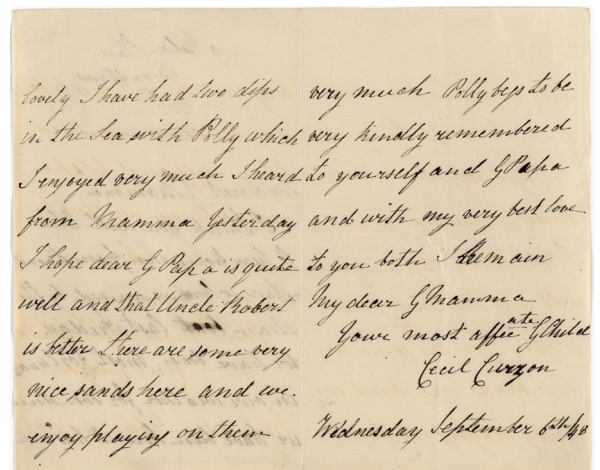 lovely I have had two dips
in the Sea with Polly which
I enjoyed very much I heard
from Mamma Yesterday
I hope dear G Papa is quite
well and that Uncle Robert
is better there are some very
nice sands here and we
enjoy playing on them
very much Polly begs to be
very kindly remembered
to yourself and G Papa
and with my very best love
to you both I Remain
My dear G Mamma
Your most affecate G Child
Cecil Curzon
Wednesday September 6th/48